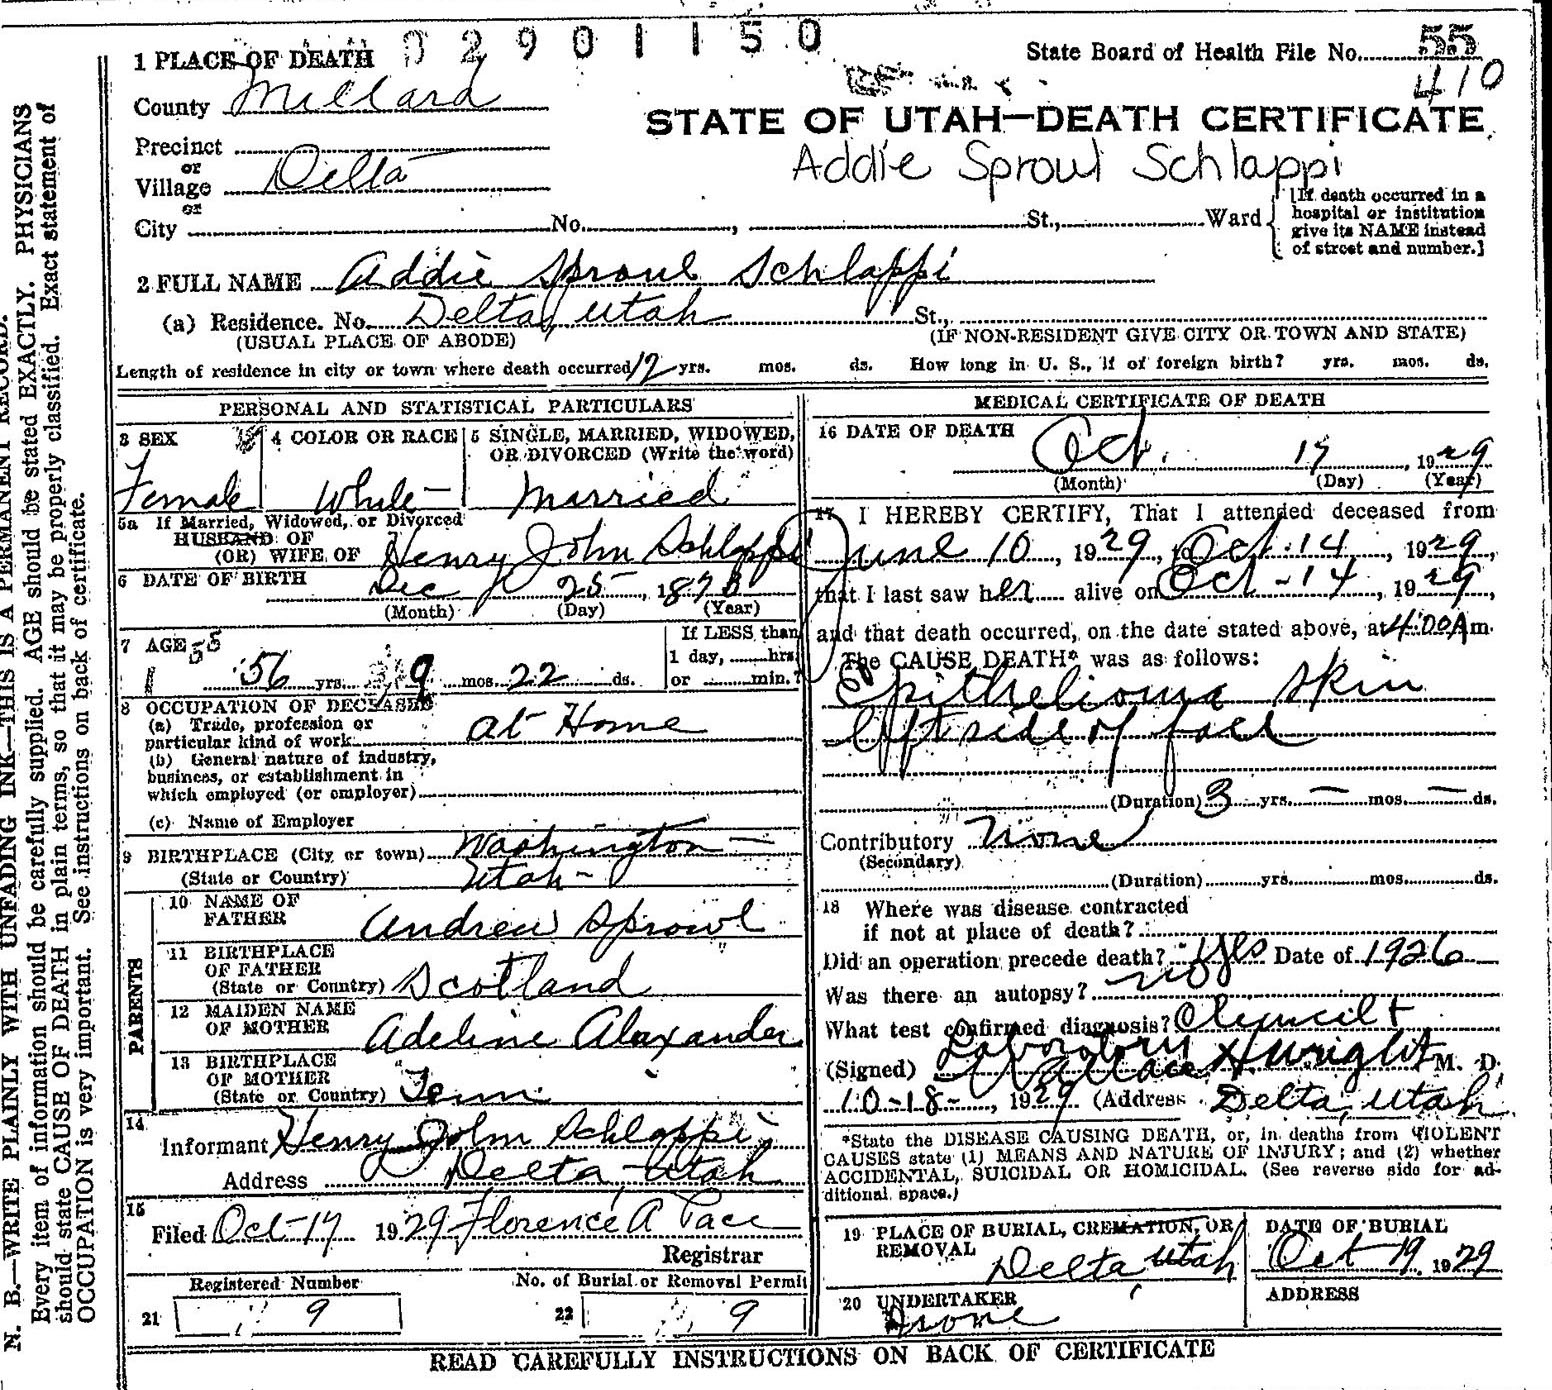 02901150
State Board of Health File No. 55
410
1 PLACE OF DEATH
County Millard
STATE OF UTAH—DEATH CERTIFICATE
Precinct
or
Village Delta
Addie Sproul Schlappi
or
City No. , St., Ward
[If death occurred in a
hospital or institution
give its NAME instead
of street and number.]
2 FULL NAME Addie Sproul Schlappi
(a) Residence. No. Delta, Utah St.,
(USUAL PLACE OF ABODE) (IF NON-RESIDENT GIVE CITY OR TOWN AND STATE)
Length of residence in city or town where death occurred 12 yrs. mos. ds. How long in U. S., if of foreign birth? yrs. mos. ds.
PERSONAL AND STATISTICAL PARTICULARS
3 SEX 4 COLOR OR RACE 5 SINGLE, MARRIED, WIDOWED,
OR DIVORCED (Write the word)
Female White Married
5a If Married, Widowed, or Divorced
HUSBAND OF
(OR) WIFE OF Henry John Schlappi
6 DATE OF BIRTH Dec 25 1873
(Month) (Day) (Year)
7 AGE 55
56 yrs. 9 mos. 22 ds.
If LESS than
1 day, hrs.
or min.?
8 OCCUPATION OF DECEASED
(a) Trade, profession or
particular kind of work At Home
(b) General nature of industry,
business, or establishment in
which employed (or employer)
(c) Name of Employer
9 BIRTHPLACE (City or town) Washington
(State or Country) Utah
PARENTS
10 NAME OF
FATHER Andrew Sprowl
11 BIRTHPLACE
OF FATHER
(State or Country) Scotland
12 MAIDEN NAME
OF MOTHER Adeline Alaxander
13 BIRTHPLACE
OF MOTHER
(State or Country) Tenn
14
Informant Henry John Schlappi
Address Delta, Utah
15
Filed Oct-17 1929 Florence A Pace
Registrar
Registered Number No. of Burial or Removal Permit
21 9 22 9
MEDICAL CERTIFICATE OF DEATH
16 DATE OF DEATH
Oct. 17, 1929
(Month) (Day) (Year)
17 I HEREBY CERTIFY, That I attended deceased from
June 10, 1929, to Oct. 14, 1929,
that I last saw her alive on Oct-14, 1929,
and that death occurred, on the date stated above, at 4:00 A m.
The CAUSE DEATH* was as follows:
Epithelioma skin
left side of face
(Duration) 3 yrs. — mos. — ds.
Contributory None
(Secondary)
(Duration) yrs. mos. ds.
18 Where was disease contracted
if not at place of death?
Did an operation precede death? Yes Date of 1926
Was there an autopsy? no
What test confirmed diagnosis? Clinical +
Laboratory
(Signed) Wallace H Wright M. D.
10-18-, 1929 (Address Delta, Utah
*State the DISEASE CAUSING DEATH, or, in deaths from VIOLENT
CAUSES state (1) MEANS AND NATURE OF INJURY; and (2) whether
ACCIDENTAL, SUICIDAL OR HOMICIDAL. (See reverse side for ad-
ditional space.)
19 PLACE OF BURIAL, CREMATION, OR
REMOVAL
Delta, Utah
DATE OF BURIAL
Oct 19, 1929
20 UNDERTAKER
None
ADDRESS
READ CAREFULLY INSTRUCTIONS ON BACK OF CERTIFICATE
N. B.—WRITE PLAINLY WITH UNFADING INK—THIS IS A PERMANENT RECORD.
Every item of information should be carefully supplied. AGE should be stated EXACTLY. PHYSICIANS
should state CAUSE OF DEATH in plain terms, so that it may be properly classified. Exact statement of
OCCUPATION is very important. See instructions on back of certificate.